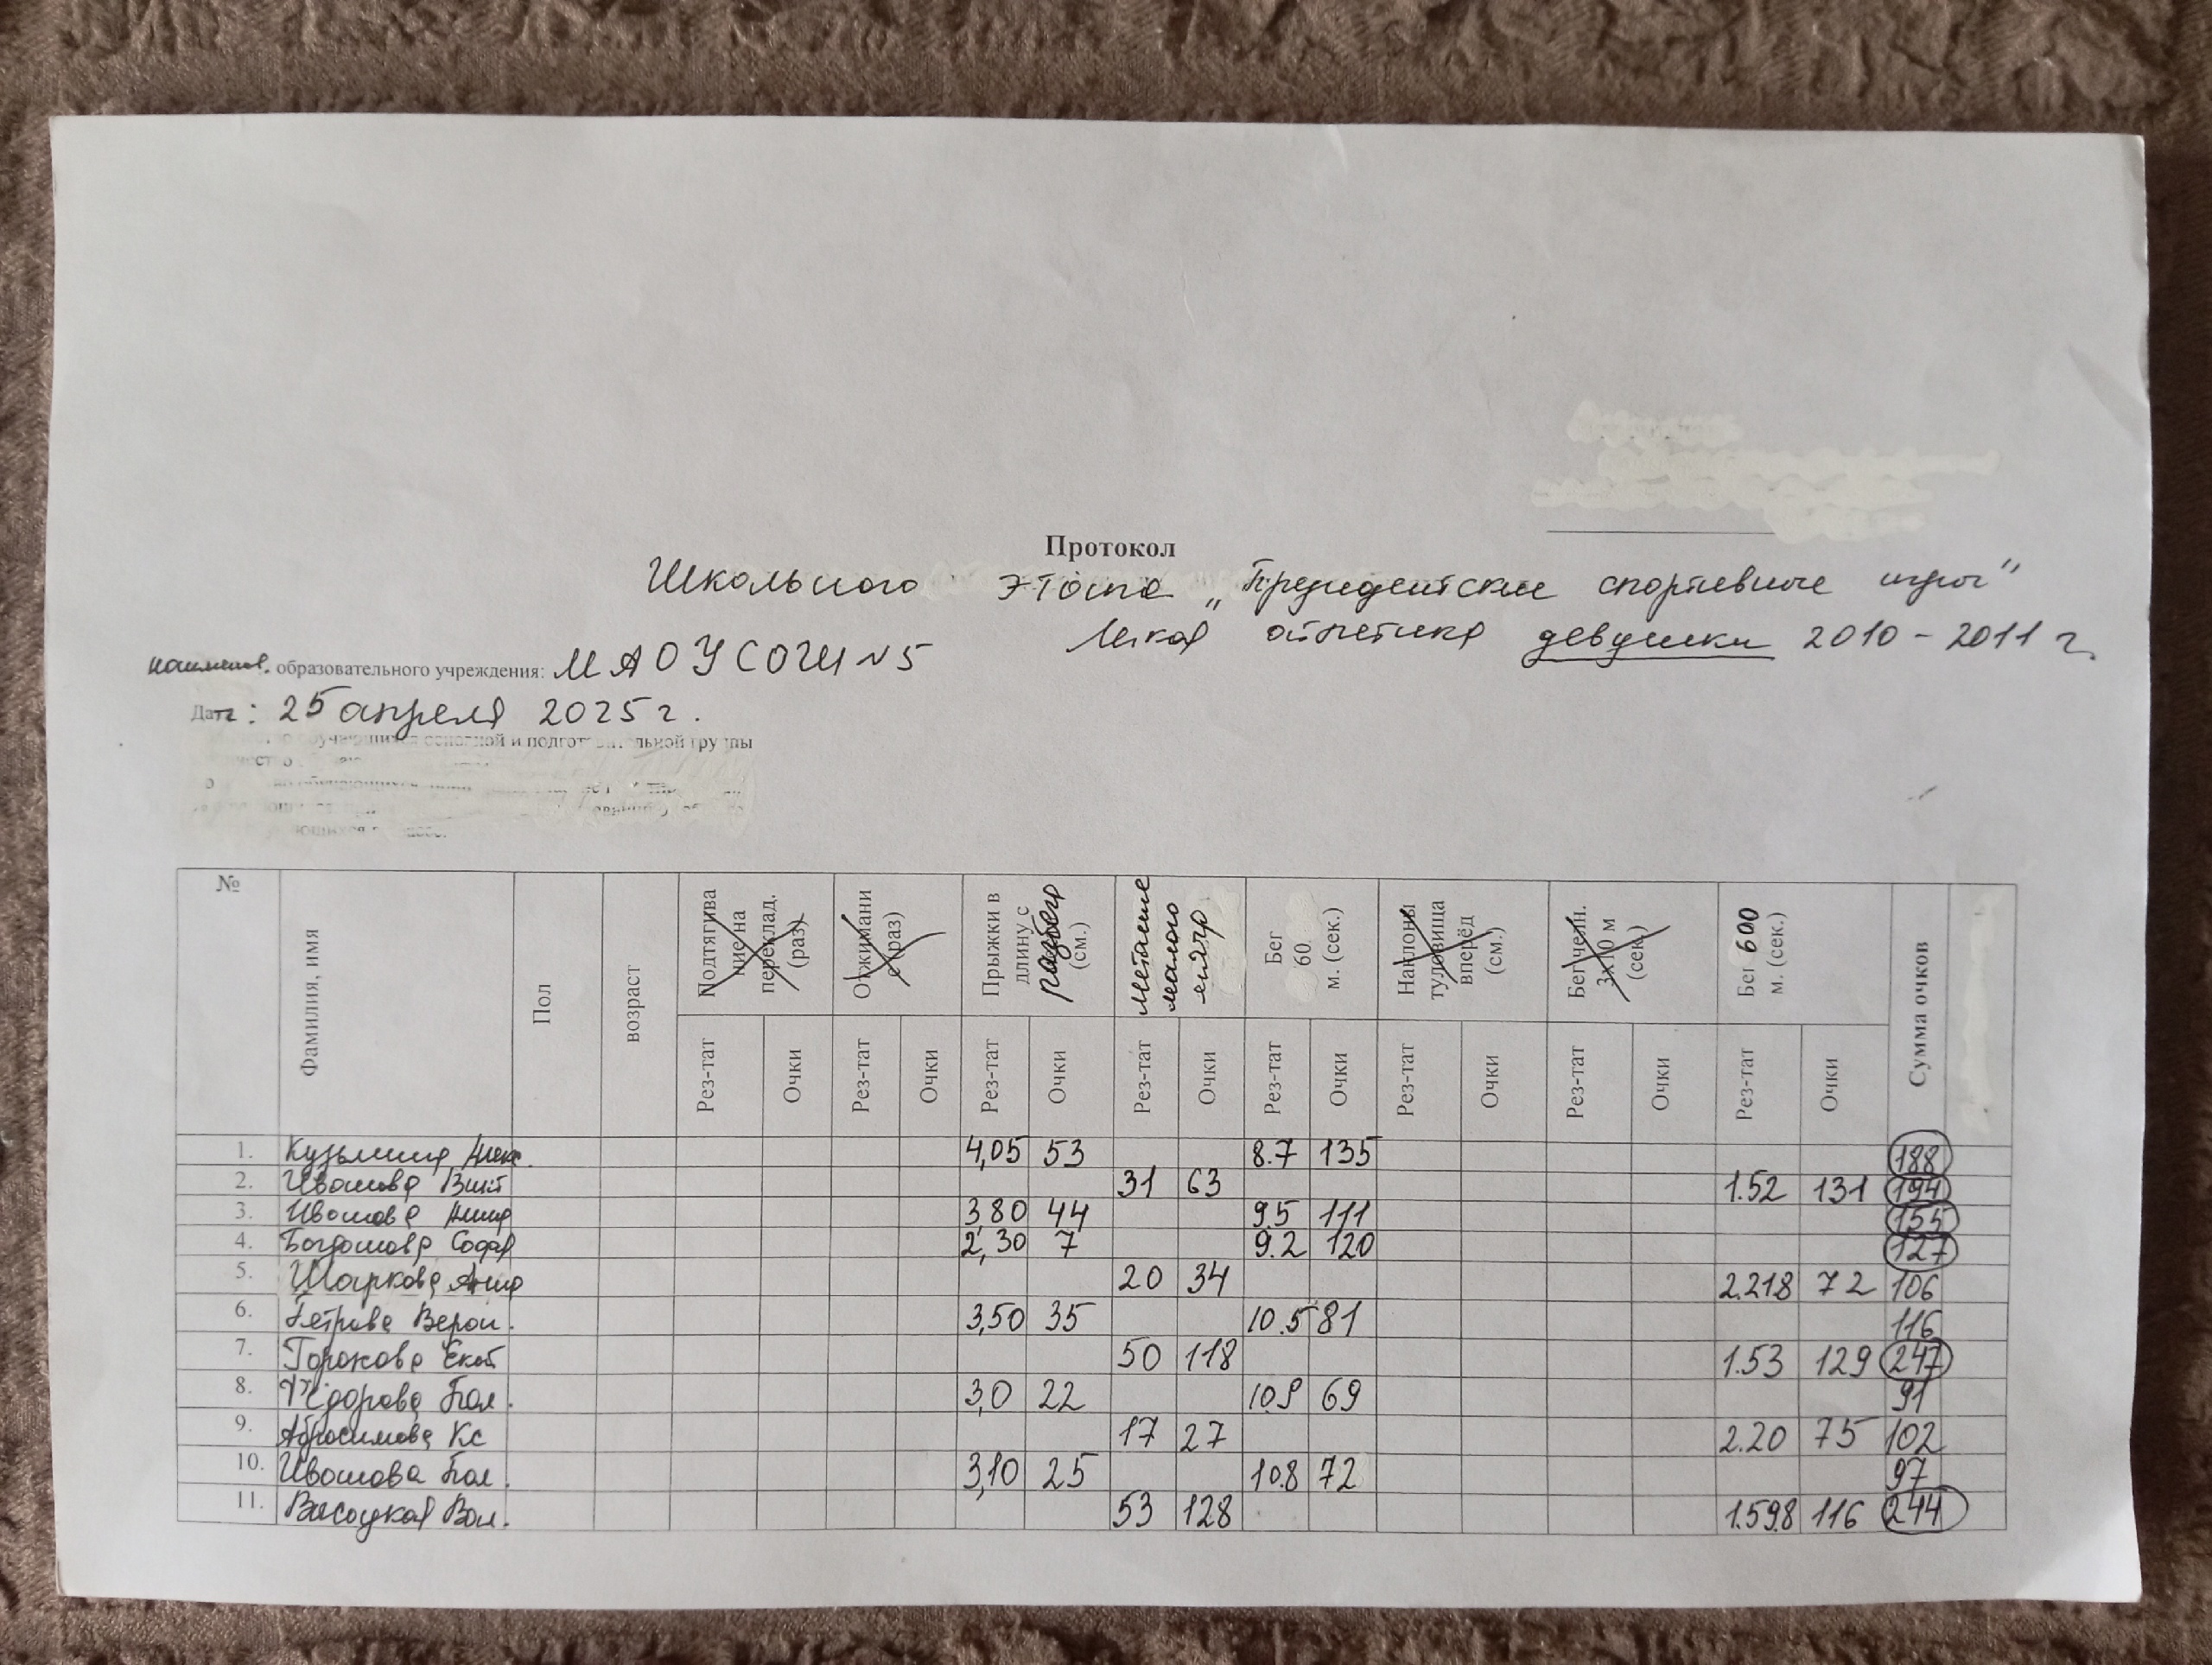 Протокол
Школьного этапа „Президентские спортивные игры"
Легкая атлетика девушки 2010-2011 г.
наименов. образовательного учреждения: МАОУСОШ N5
Дата: 25 апреля 2025 г.
обучающихся основной и подготовительной группы
№ Фамилия, имя Пол возраст Подтягивание на переклад. (раз) Отжимание (раз) Прыжки в длину с разбега (см.) Метание малого мяча Бег 60 м. (сек.) Наклоны туловища вперёд (см.) Бег челн. 3х10 м (сек.) Бег 600 м. (сек.) Сумма очков
Рез-тат Очки Рез-тат Очки Рез-тат Очки Рез-тат Очки Рез-тат Очки Рез-тат Очки Рез-тат Очки Рез-тат Очки
1. Кузьмина Алек. 4,05 53 8.7 135 188
2. Иванова Викт 31 63 1.52 131 194
3. Иванова Анна 3,80 44 9.5 111 155
4. Богданова Софья 2,30 7 9.2 120 127
5. Шаркова Анна 20 34 2.218 72 106
6. Петрова Верон. 3,50 35 10.5 81 116
7. Горохова Екат 50 118 1.53 129 247
8. Фёдорова Пол. 3,0 22 10.9 69 91
9. Абросимова Кс 17 27 2.20 75 102
10. Иванова Пол. 3,10 25 10.8 72 97
11. Высоцкая Вал. 53 128 1.59.8 116 244